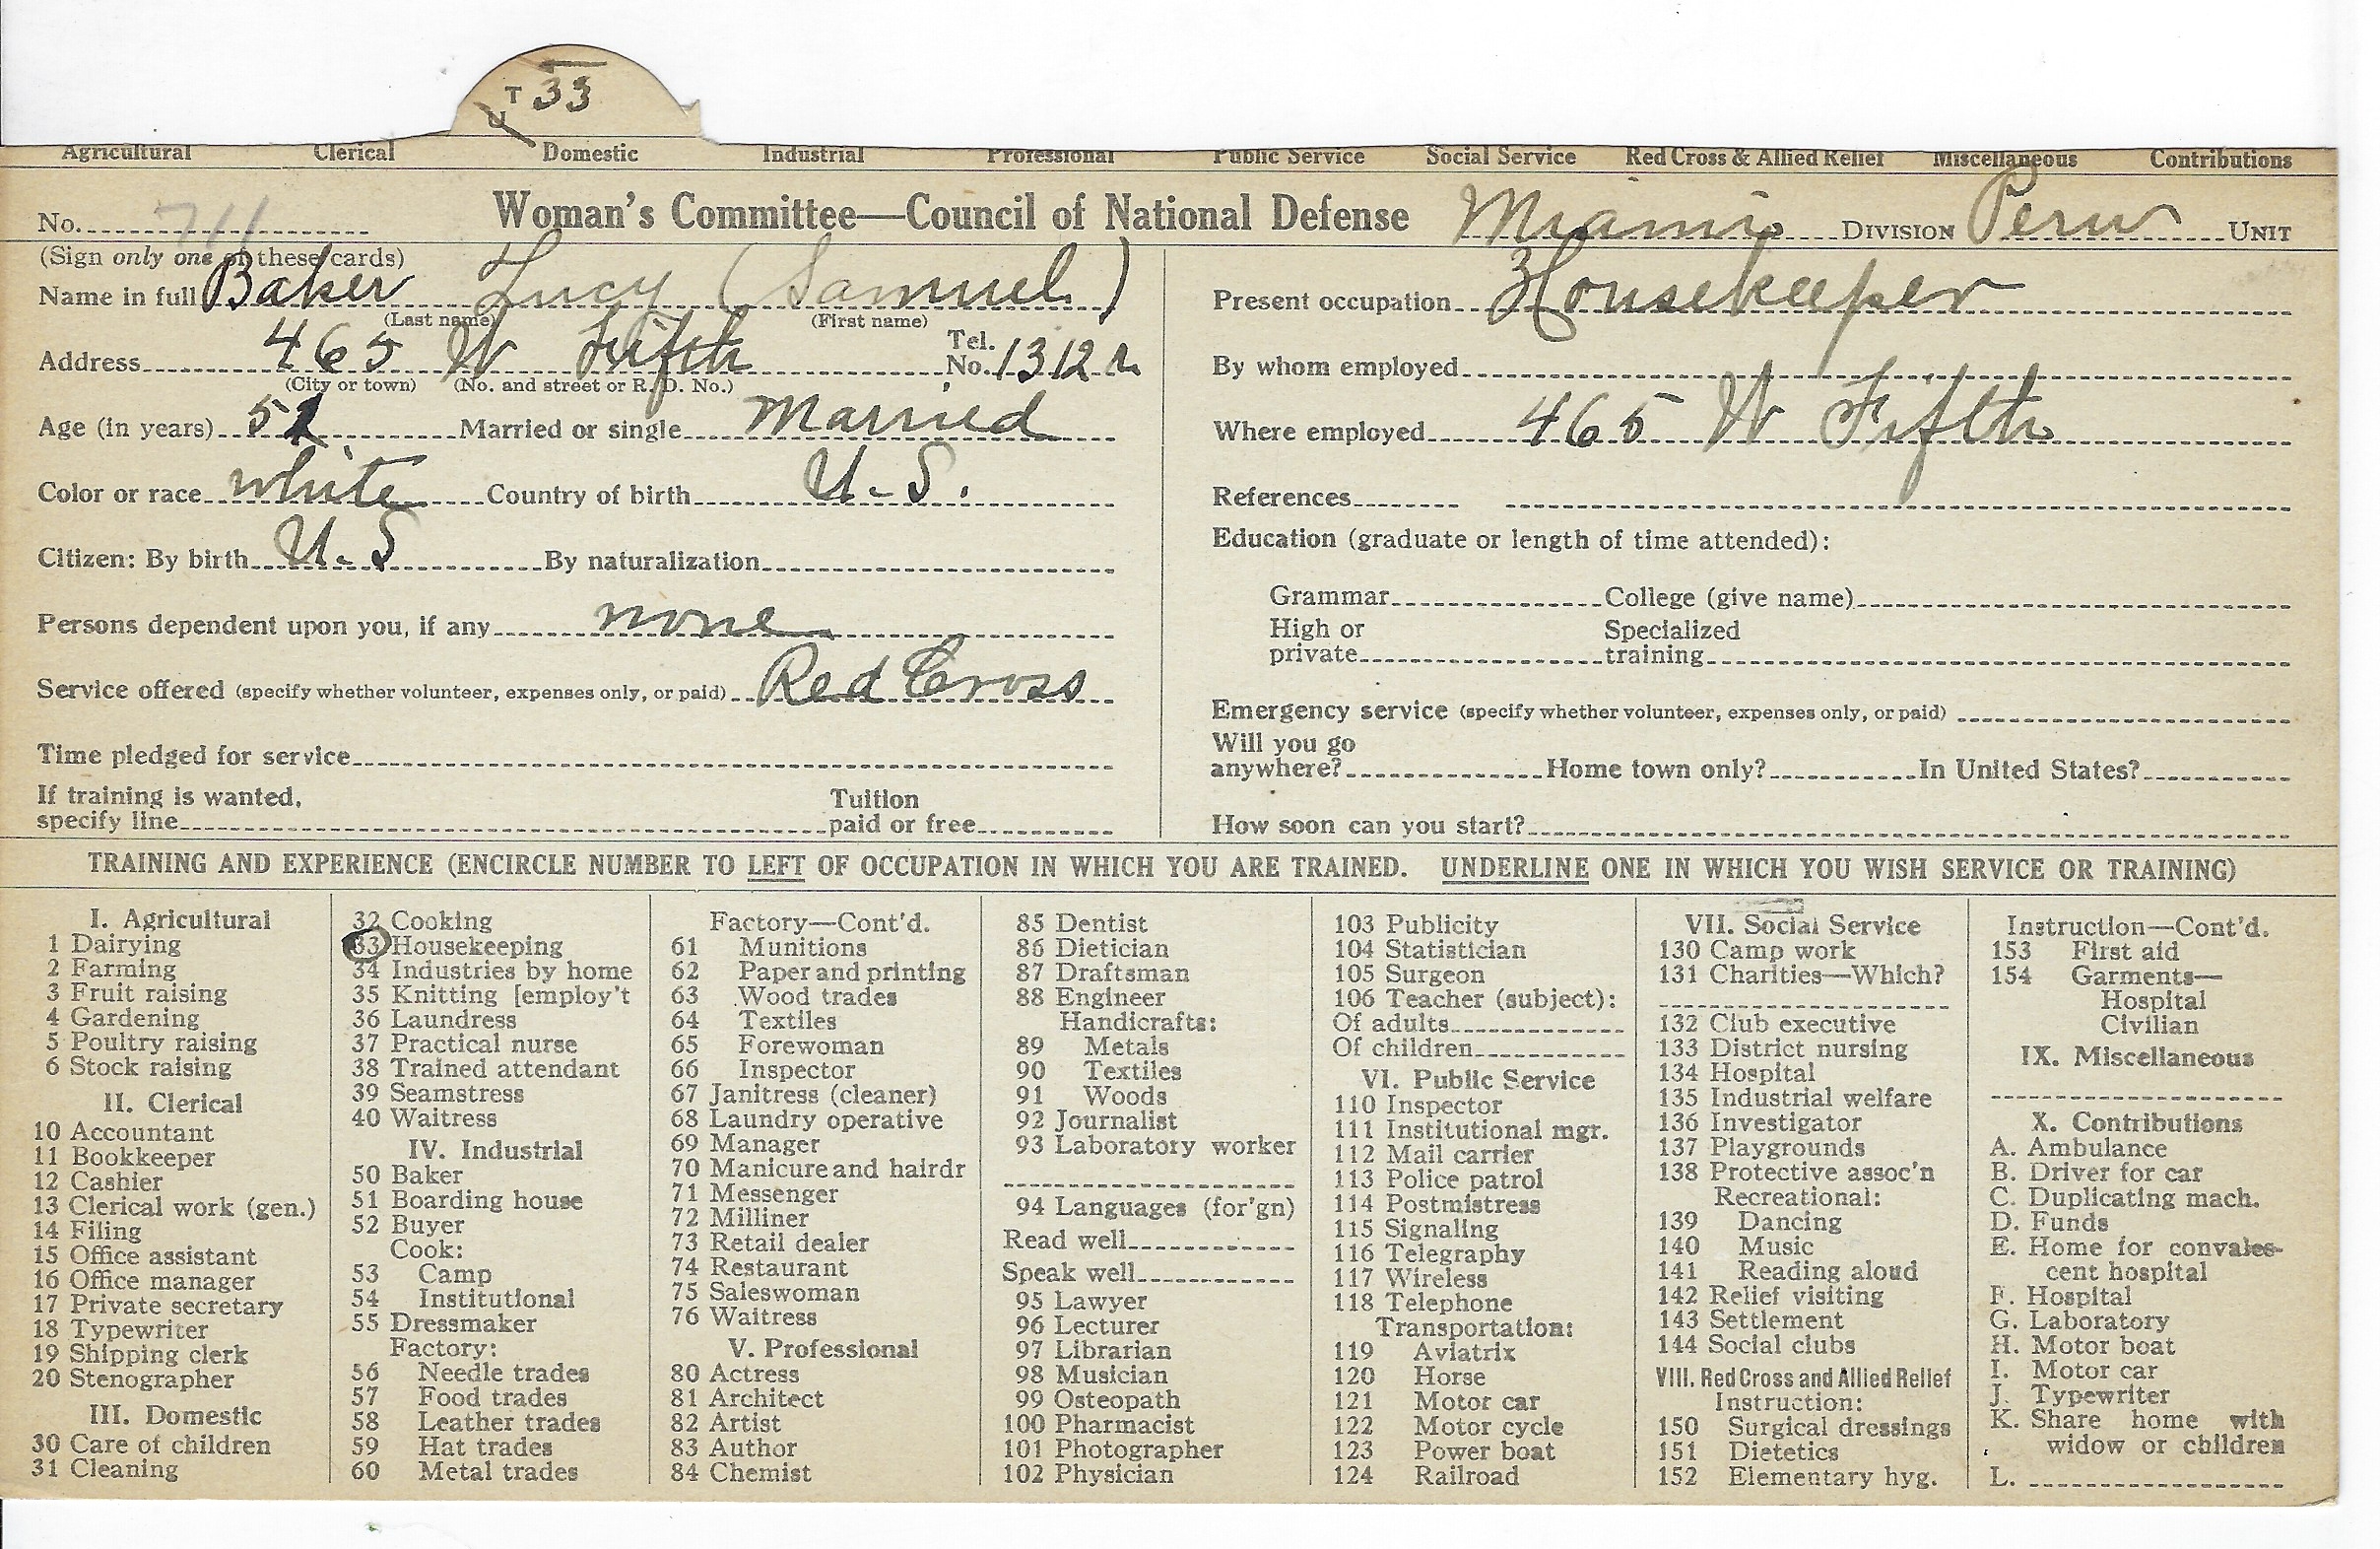 T 33
U
Agricultural Clerical Domestic Industrial Professional Public Service Social Service Red Cross & Allied Relief Miscellaneous Contributions
No. 711 Woman's Committee—Council of National Defense Miami DIVISION Peru UNIT
(Sign only one of these cards)
Name in full Baker Lucy (Samuel)
(Last name) (First name)
Address 465 W Fifth Tel. No. 1312
(City or town) (No. and street or R. D. No.)
Age (in years) 52 Married or single Married
Color or race white Country of birth U.S.
Citizen: By birth U.S By naturalization
Persons dependent upon you, if any none
Service offered (specify whether volunteer, expenses only, or paid) Red Cross
Time pledged for service
If training is wanted, specify line Tuition paid or free
Present occupation Housekeeper
By whom employed
Where employed 465 W Fifth
References
Education (graduate or length of time attended):
Grammar College (give name)
High or private Specialized training
Emergency service (specify whether volunteer, expenses only, or paid)
Will you go anywhere? Home town only? In United States?
How soon can you start?
TRAINING AND EXPERIENCE (ENCIRCLE NUMBER TO LEFT OF OCCUPATION IN WHICH YOU ARE TRAINED. UNDERLINE ONE IN WHICH YOU WISH SERVICE OR TRAINING)
I. Agricultural
1 Dairying
2 Farming
3 Fruit raising
4 Gardening
5 Poultry raising
6 Stock raising
II. Clerical
10 Accountant
11 Bookkeeper
12 Cashier
13 Clerical work (gen.)
14 Filing
15 Office assistant
16 Office manager
17 Private secretary
18 Typewriter
19 Shipping clerk
20 Stenographer
III. Domestic
30 Care of children
31 Cleaning
32 Cooking
33 Housekeeping
34 Industries by home
35 Knitting [employ't
36 Laundress
37 Practical nurse
38 Trained attendant
39 Seamstress
40 Waitress
IV. Industrial
50 Baker
51 Boarding house
52 Buyer
Cook:
53 Camp
54 Institutional
55 Dressmaker
Factory:
56 Needle trades
57 Food trades
58 Leather trades
59 Hat trades
60 Metal trades
Factory—Cont'd.
61 Munitions
62 Paper and printing
63 Wood trades
64 Textiles
65 Forewoman
66 Inspector
67 Janitress (cleaner)
68 Laundry operative
69 Manager
70 Manicure and hairdr
71 Messenger
72 Milliner
73 Retail dealer
74 Restaurant
75 Saleswoman
76 Waitress
V. Professional
80 Actress
81 Architect
82 Artist
83 Author
84 Chemist
85 Dentist
86 Dietician
87 Draftsman
88 Engineer
Handicrafts:
89 Metals
90 Textiles
91 Woods
92 Journalist
93 Laboratory worker
94 Languages (for'gn)
Read well
Speak well
95 Lawyer
96 Lecturer
97 Librarian
98 Musician
99 Osteopath
100 Pharmacist
101 Photographer
102 Physician
103 Publicity
104 Statistician
105 Surgeon
106 Teacher (subject):
Of adults
Of children
VI. Public Service
110 Inspector
111 Institutional mgr.
112 Mail carrier
113 Police patrol
114 Postmistress
115 Signaling
116 Telegraphy
117 Wireless
118 Telephone
Transportation:
119 Aviatrix
120 Horse
121 Motor car
122 Motor cycle
123 Power boat
124 Railroad
VII. Social Service
130 Camp work
131 Charities—Which?
132 Club executive
133 District nursing
134 Hospital
135 Industrial welfare
136 Investigator
137 Playgrounds
138 Protective assoc'n
Recreational:
139 Dancing
140 Music
141 Reading aloud
142 Relief visiting
143 Settlement
144 Social clubs
VIII. Red Cross and Allied Relief
Instruction:
150 Surgical dressings
151 Dietetics
152 Elementary hyg.
Instruction—Cont'd.
153 First aid
154 Garments—
Hospital
Civilian
IX. Miscellaneous
X. Contributions
A. Ambulance
B. Driver for car
C. Duplicating mach.
D. Funds
E. Home for convales-
cent hospital
F. Hospital
G. Laboratory
H. Motor boat
I. Motor car
J. Typewriter
K. Share home with
widow or children
L.